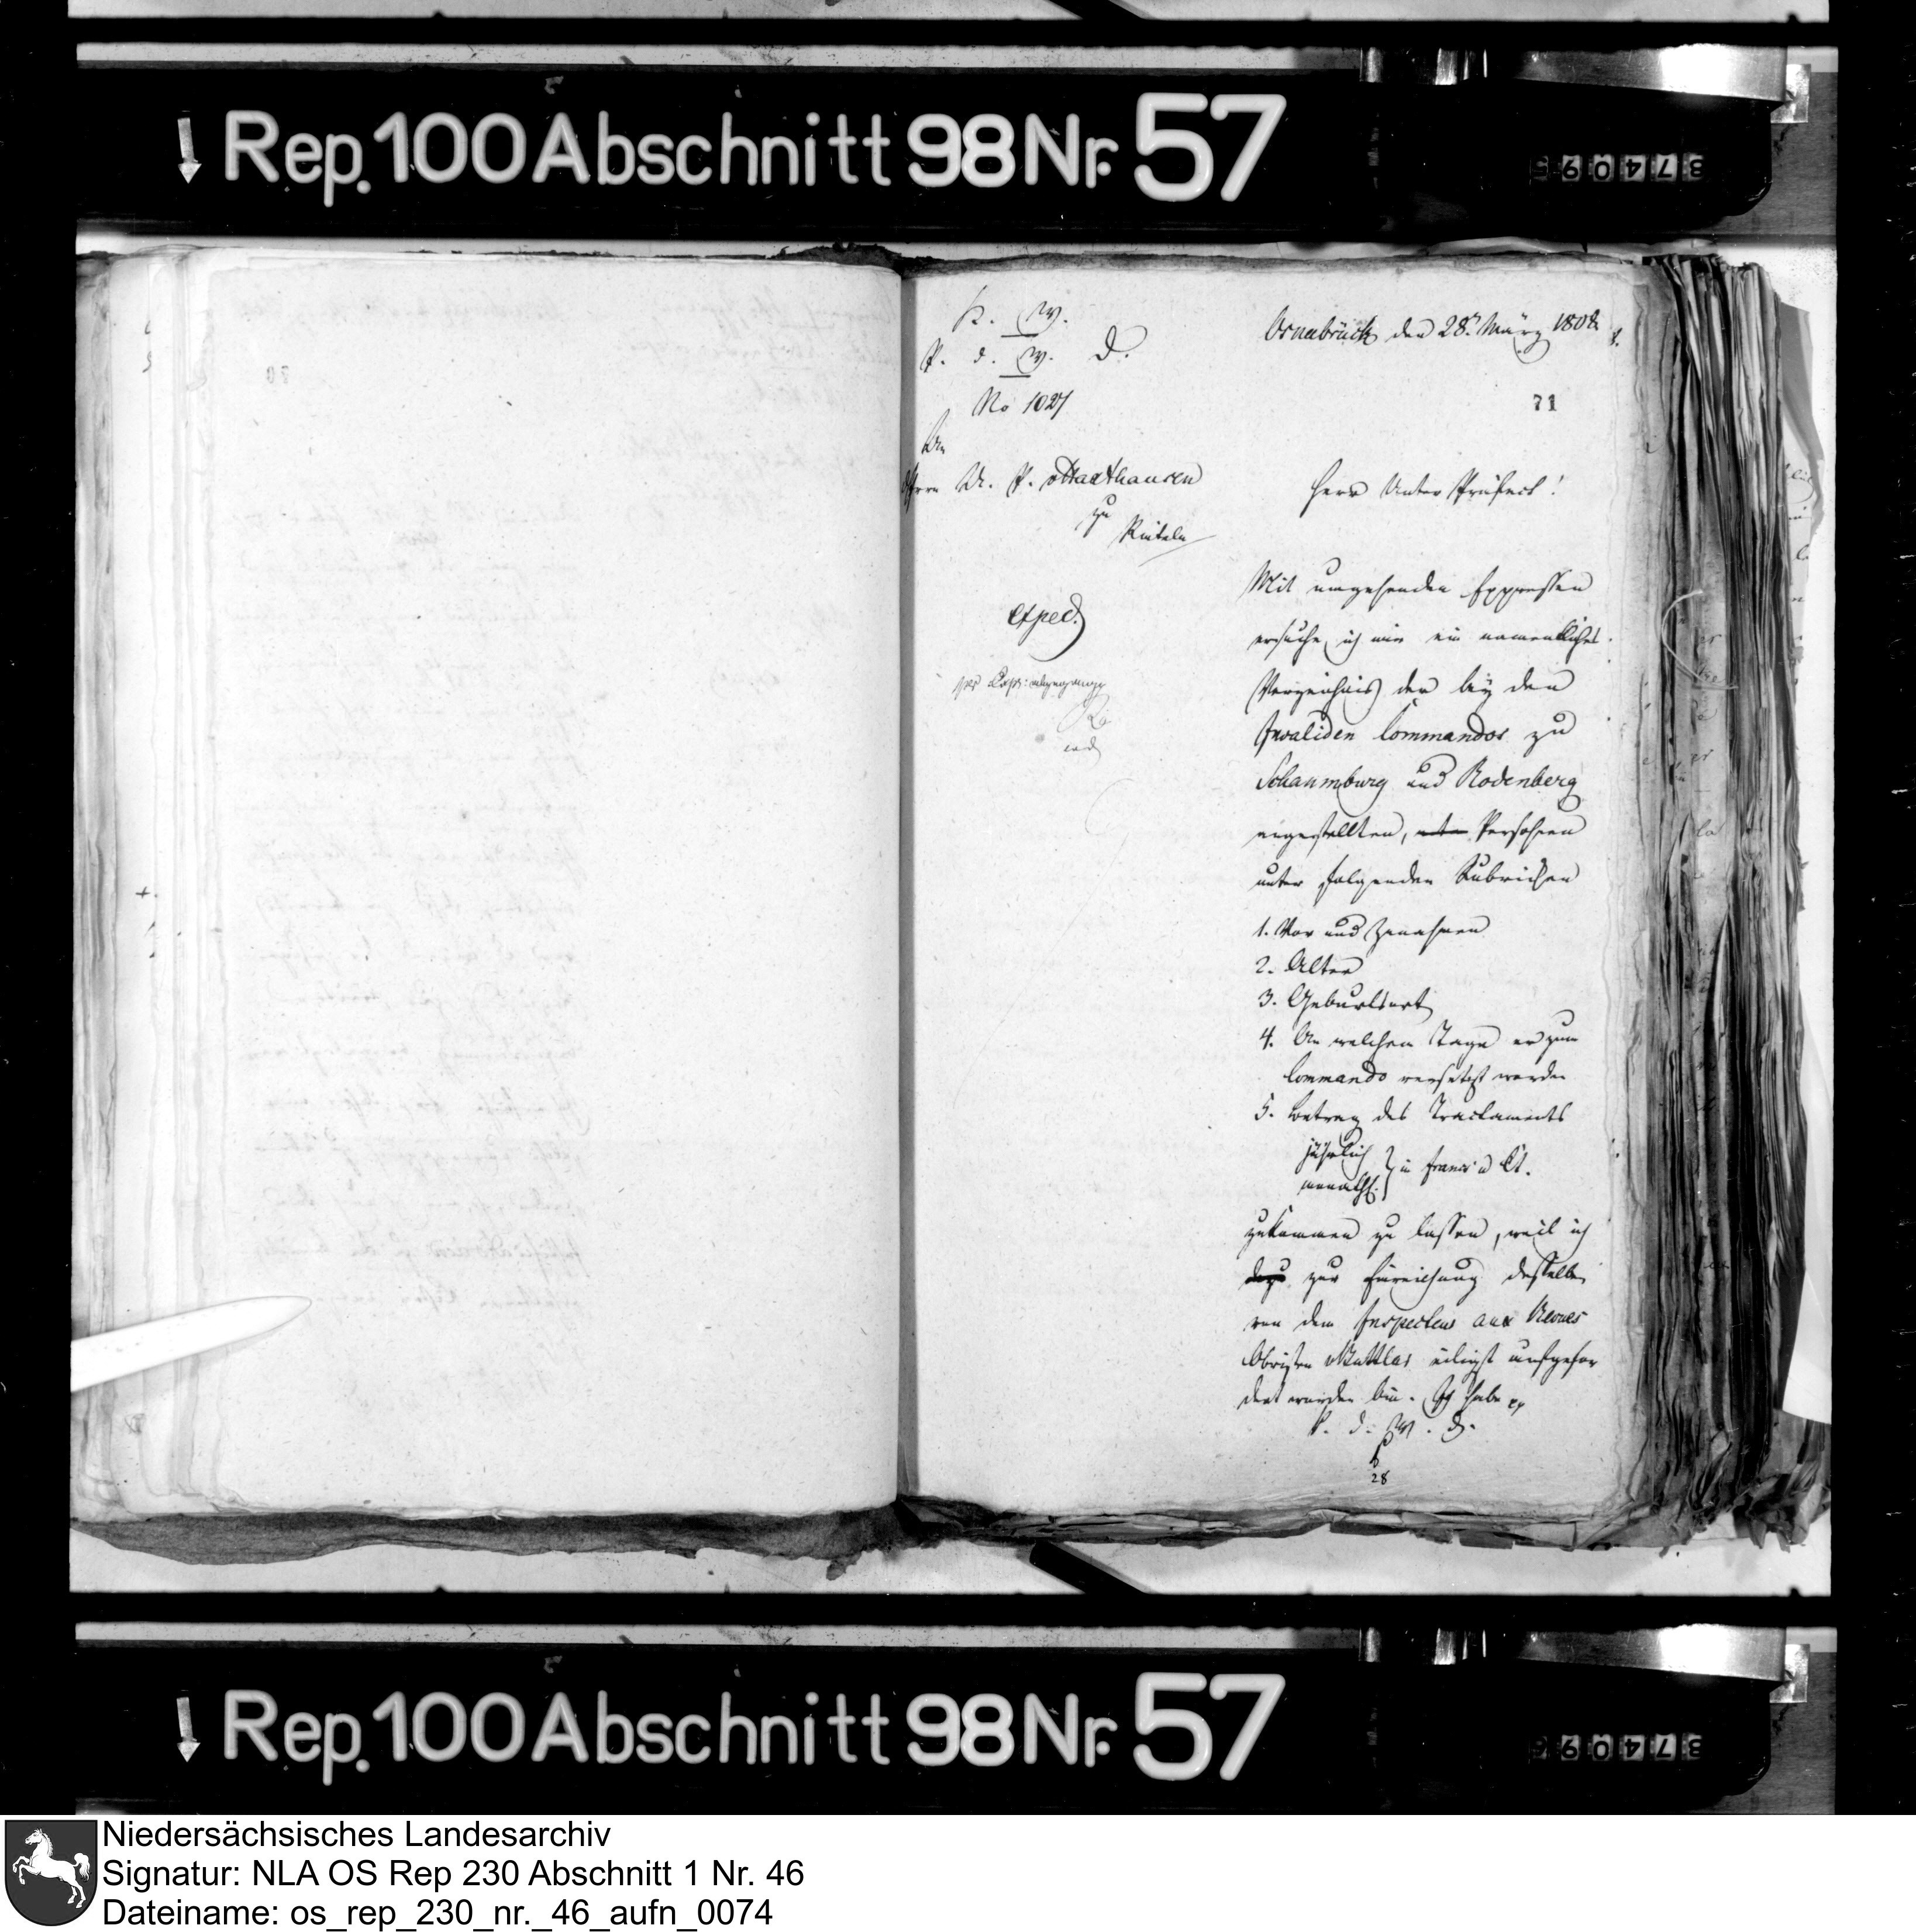 Rep. 100 Abschnitt 98 Nr. 57
K. W.
P. d. W. D.
No 1027
Osnabrück den 28t. März 1808
71
An
Herrn U. P. v Haxthausen
zu
Rinteln
exped.
per Expr: abgegangen
Herr Unter Präfect!
Mit umgehenden Expressen
ersuche ich mir ein namentliches
Verzeichnis der bey den
Invaliden Commandos zu
Schaumburg und Rodenberg
angestellten, Persohnen
unter folgenden Rubricken
1. Vor und Zunahmen
2. Alter
3. Geburtsort
4. An welchem Tage er zum
Commando versetzt worden
5. Betrag des Tractaments
jährlich
monathl. } in Francs u Ct.
zukommen zu lassen, weil ich
dazu zur Einreichung desselben
von dem Inspecteur aux Revues
Obristen v Mattlar eiligst aufgefor
dert worden bin. Ich habe
P. d. W. D.
28
Rep. 100 Abschnitt 98 Nr. 57
Niedersächsisches Landesarchiv
Signatur: NLA OS Rep 230 Abschnitt 1 Nr. 46
Dateiname: os_rep_230_nr._46_aufn_0074